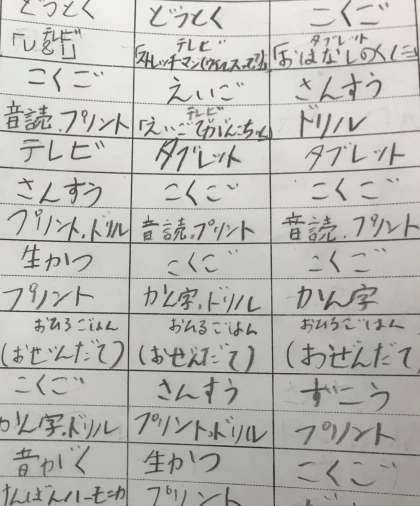 どうとく どうとく こくご
テレビ テレビ タブレット
「U&I」 「ストレッチマン 「おはなしのくに」
こくご えいご さんすう
音読.プリント テレビ ドリル
「えいごでがんこちゃん」
テレビ タブレット タブレット
さんすう こくご こくご
プリント.ドリル 音読.プリント 音読.プリント
生かつ こくご こくご
プリント かん字.ドリル かん字
おひるごはん おひるごはん おひるごはん
(おぜんだて) (おぜんだて) (おぜんだて
こくご さんすう ずこう
かん字.ドリル プリント.ドリル プリント
音がく 生かつ こくご
けんばんハーモニカ プリント